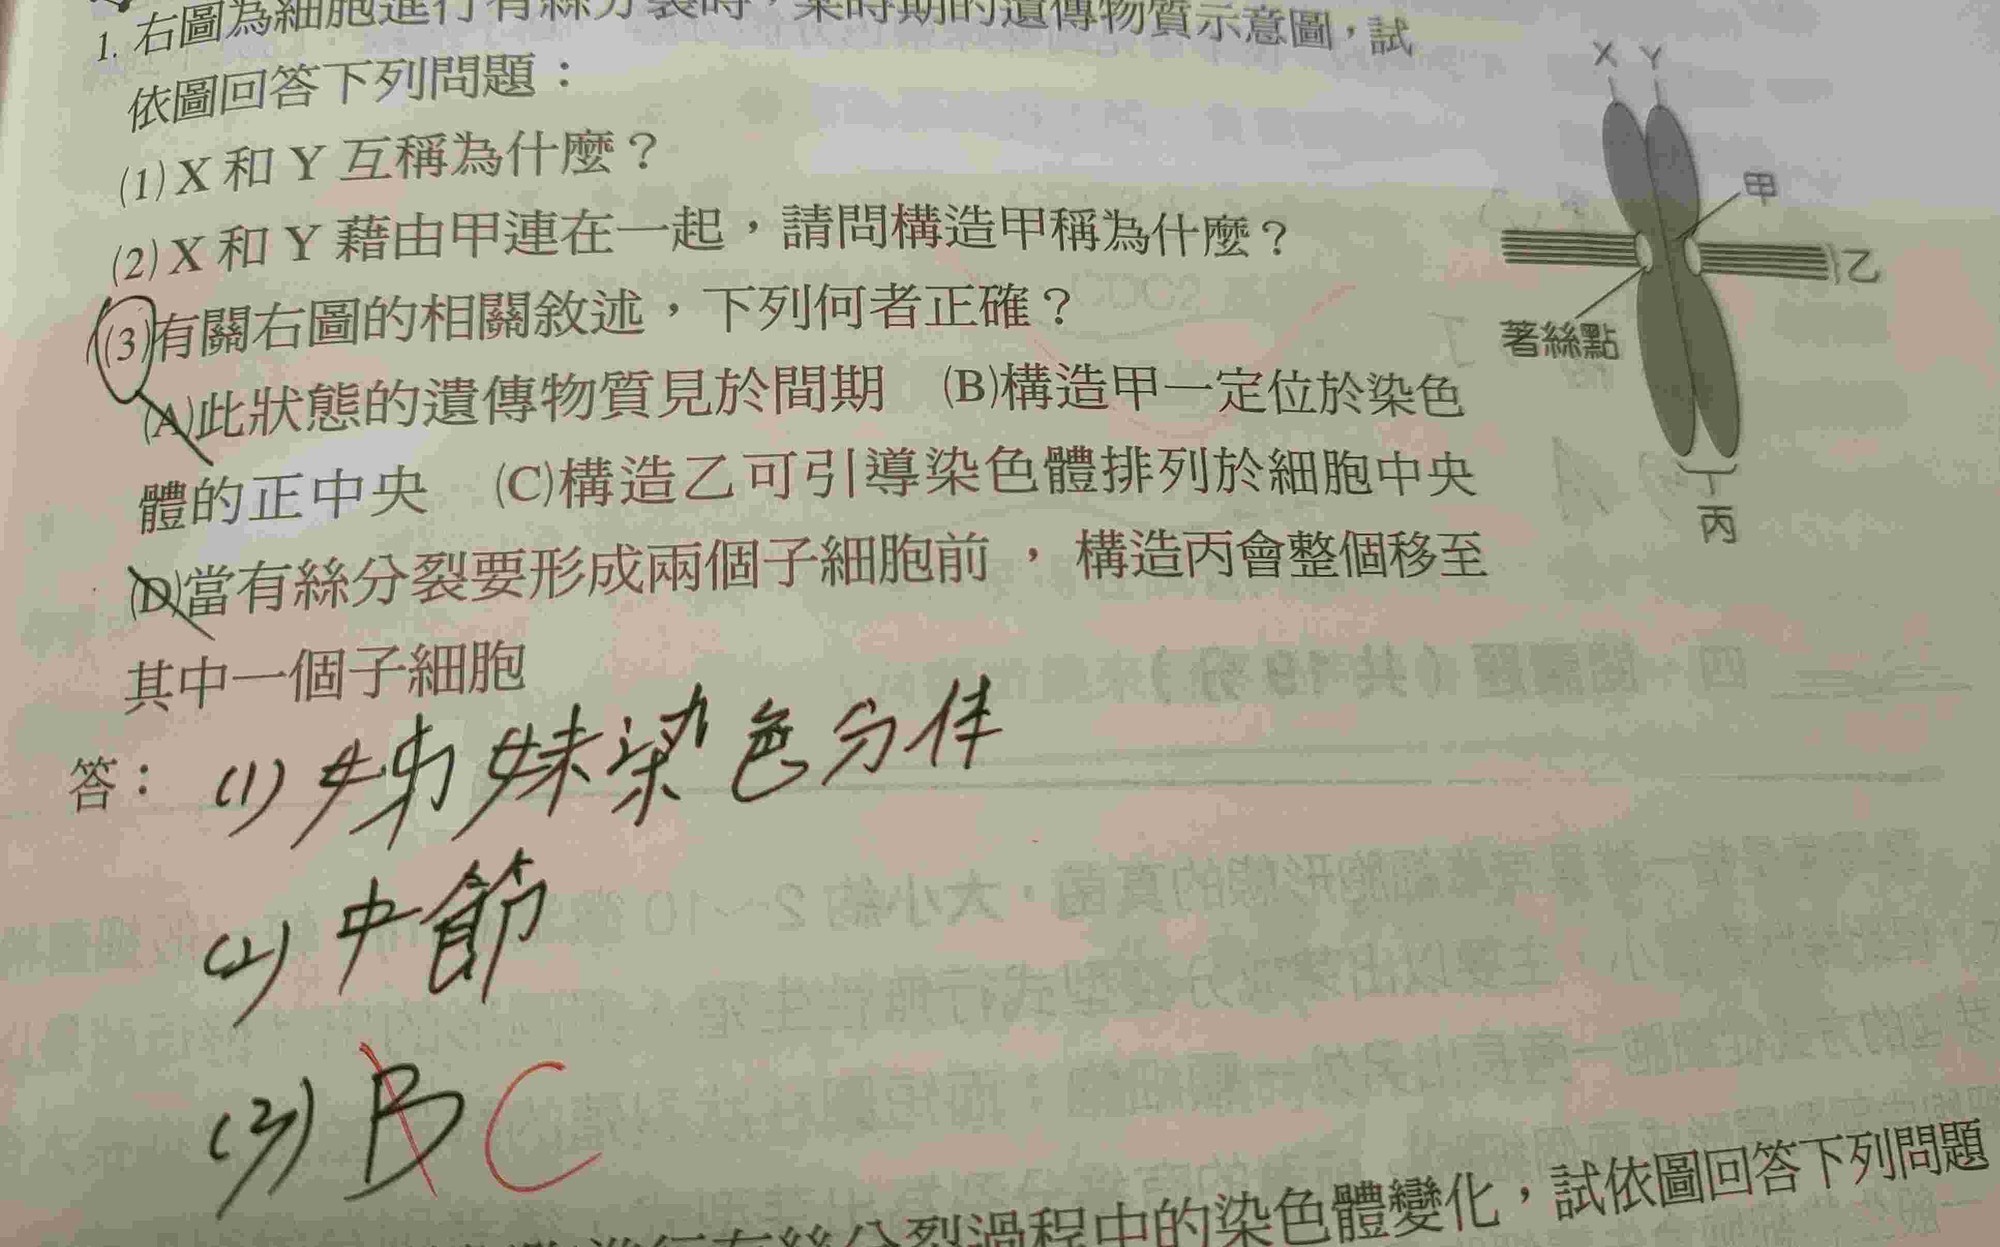 1. 右圖為細胞進行有絲分裂時，某時期的遺傳物質示意圖，試
依圖回答下列問題：
(1) X 和 Y 互稱為什麼？
(2) X 和 Y 藉由甲連在一起，請問構造甲稱為什麼？
(3) 有關右圖的相關敘述，下列何者正確？
(A)此狀態的遺傳物質見於間期 (B)構造甲一定位於染色
體的正中央 (C)構造乙可引導染色體排列於細胞中央
(D)當有絲分裂要形成兩個子細胞前，構造丙會整個移至
其中一個子細胞
X Y
甲
乙
著絲點
丙
答：(1) 姊妹染色分体
(2) 中節
(3) B C
進行有絲分裂過程中的染色體變化，試依圖回答下列問題